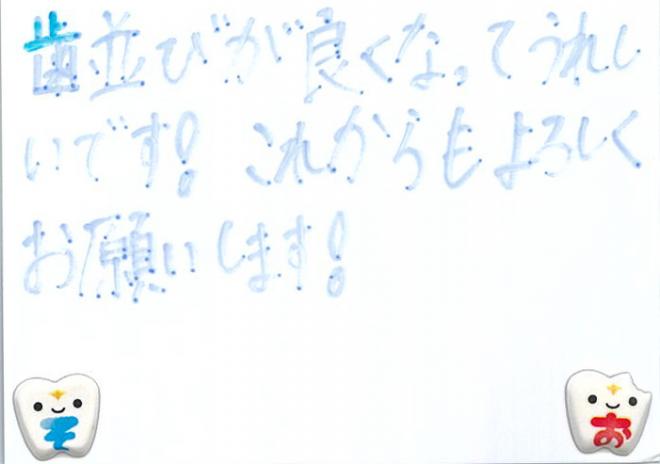 歯並びが良くなってうれし
いです! これからもよろしく
お願いします!
そ お